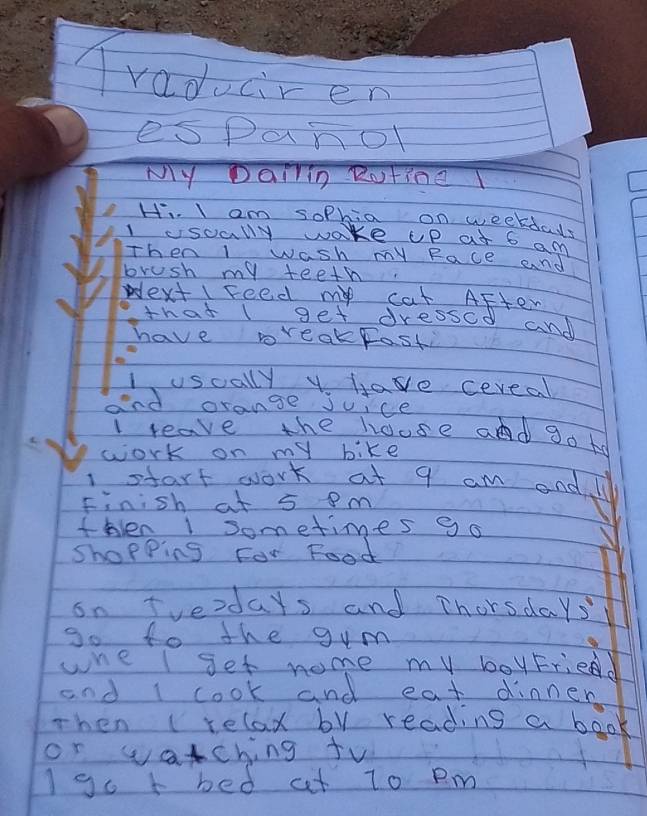 Traducir en
español
My Dailin Rutine 1
Hi. I am sophia on weekdays
I uscally wake up at 6 am
Then I wash my Face and
brush my teeth.
Next I Feed my cat AFter
that I get dressed and
have breakFast
I uscally y have cereal
and orange juice
I leave the house and go to
work on my bike
I start work at 9 am and I
Finish at 5 pm
then I Sometimes go
shopping For Food
on Tuesdays and Thorsdays I
go to the gym
whe I get home my boyFriedd
and I cook and eat dinner.
Then I relax by reading a book
or watching tv
I go t bed at 10 pm